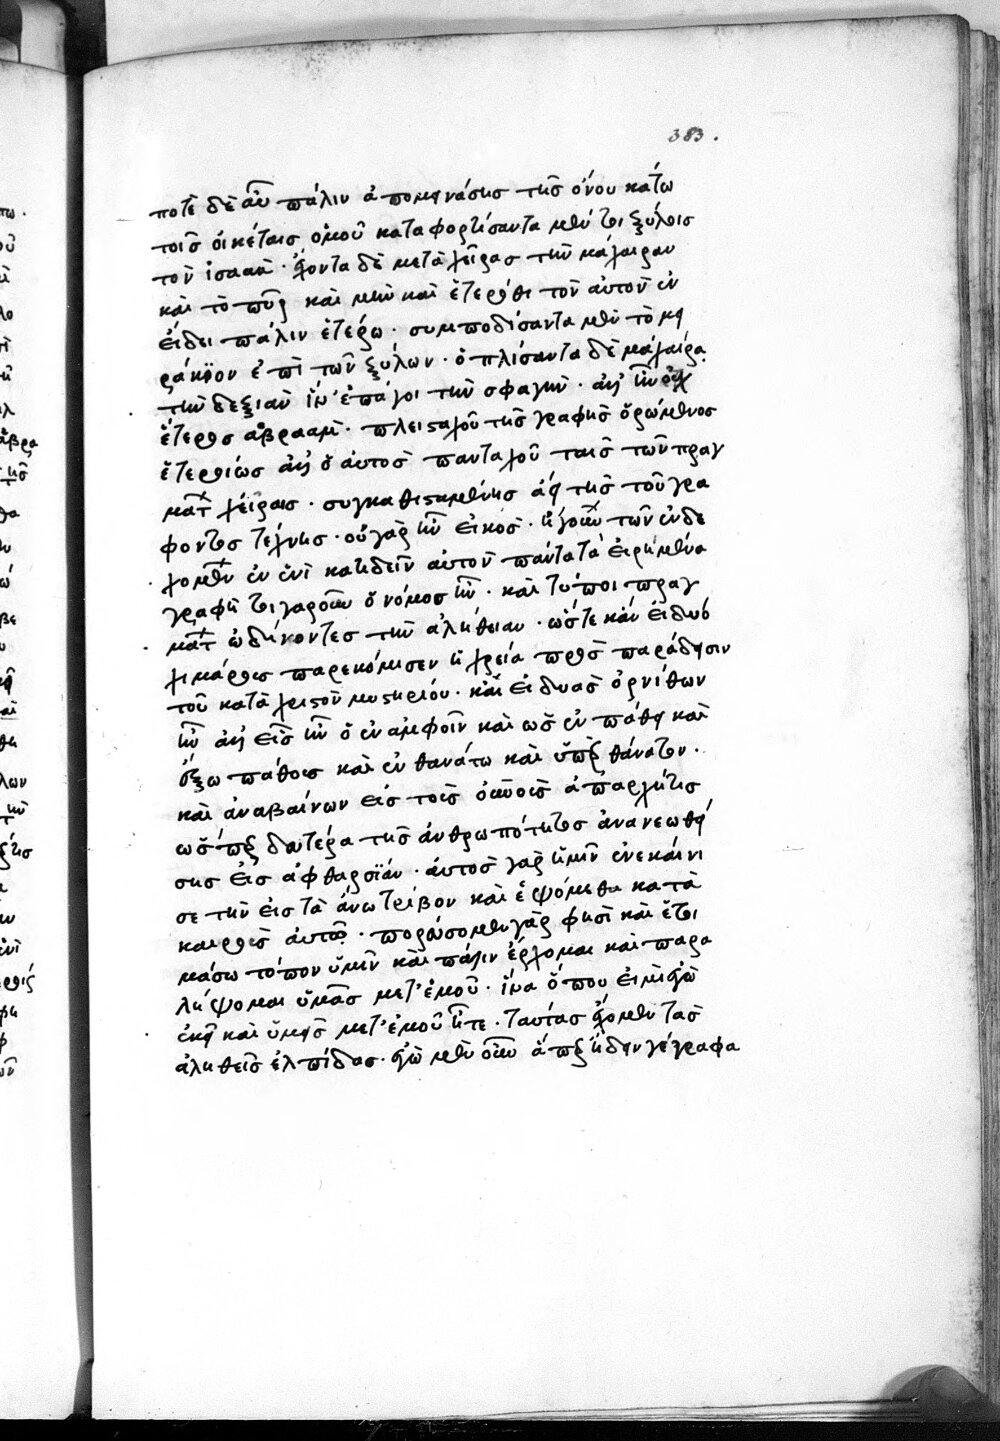 383.
ποτὲ δὲ αὖ πάλιν ἀπομεινάσης τῆς ὄνου κάτω
τοῖς οἰκέταις ὁμοῦ καταφορτίσαντα μὲν τοι ξύλοις
τὸν ἰσαὰκ · ἔχοντα δὲ μετὰ χεῖρας τὴν μάχαιραν
καὶ τὸ πῦρ καὶ μὴν καὶ ἑτέρωθι τὸν αὐτὸν ἐν
εἴδει πάλιν ἑτέρω · συμποδίσαντα μὲν τὸ μει
ράκϊον ἐπὶ τῶν ξύλων · ὁπλίσαντα δὲ μαχαίρα
τὴν δεξιὰν ἵν' ἐπάγοι τὴν σφαγὴν · ἀλλ' ἦν οὐχ
ἕτερος ἀβραὰμ · πλεισταχοῦ τῆς γραφῆς ὁρώμενος
ἑτεροίως ἀλλ' ὁ αὐτὸς πανταχοῦ ταῖς τῶν πραγ
μάτ χρείαις · συγκαθισταμένης ἀεὶ τῆς τοῦ γρά
φοντος τέχνης · οὐ γὰρ ἦν εἰκὸς · ἢ γοῦν τῶν ἐνδε
χομένων ἐν ἑνὶ κατιδεῖν αὐτὸν πάντα τὰ εἰρημένα
γραφὴ τοιγαροῦν ὁ νόμος ἦν · καὶ τύποι πραγ
μάτ ὠδίνοντες τὴν ἀλήθειαν · ὥστε κἂν εἰ δυὸ
χιμάρους παρεκόμισεν ἡ χρεία πρὸς παράδειξιν
τοῦ κατὰ χριστὸν μυστηρίου · κἂν εἰ δυὰς ὀρνίθων
ἦν ἀλλ' εἷς ἦν ὁ ἐν ἀμφοῖν καὶ ὡς ἐν πάθει καὶ
ἔξω πάθους καὶ ἐν θανάτω καὶ ὑπὲρ θάνατον ·
καὶ ἀναβαίνων εἰς τοὺς οὐνοὺς ἀπαρχή τις
ὥσπερ δευτέρα τῆς ἀνθρωπότητος ἀνανεωθεί
σης εἰς ἀφθαρσίαν · αὐτὸς γὰρ ἡμῖν ἐνεκαίνι
σε τὴν εἰς τὰ ἄνω τρίβον καὶ ἑψόμεθα κατὰ
καιροὺς αὐτῶ · πορεύσομαι γὰρ φησὶ καὶ ἑτοι
μάσω τόπον ὑμῖν καὶ πάλιν ἔρχομαι καὶ παρα
λήψομαι ὑμᾶς μετ' ἐμοῦ · ἵνα ὅπου εἰμὶ ἐγὼ
ἐκεῖ καὶ ὑμεῖς μετ' ἐμοῦ ἦτε · ταύτας ἔχομεν τὰς
ἀληθεῖς ἐλπίδας · ἐγὼ μὲν οὖν ἅπερ ἤδειν γέγραφα